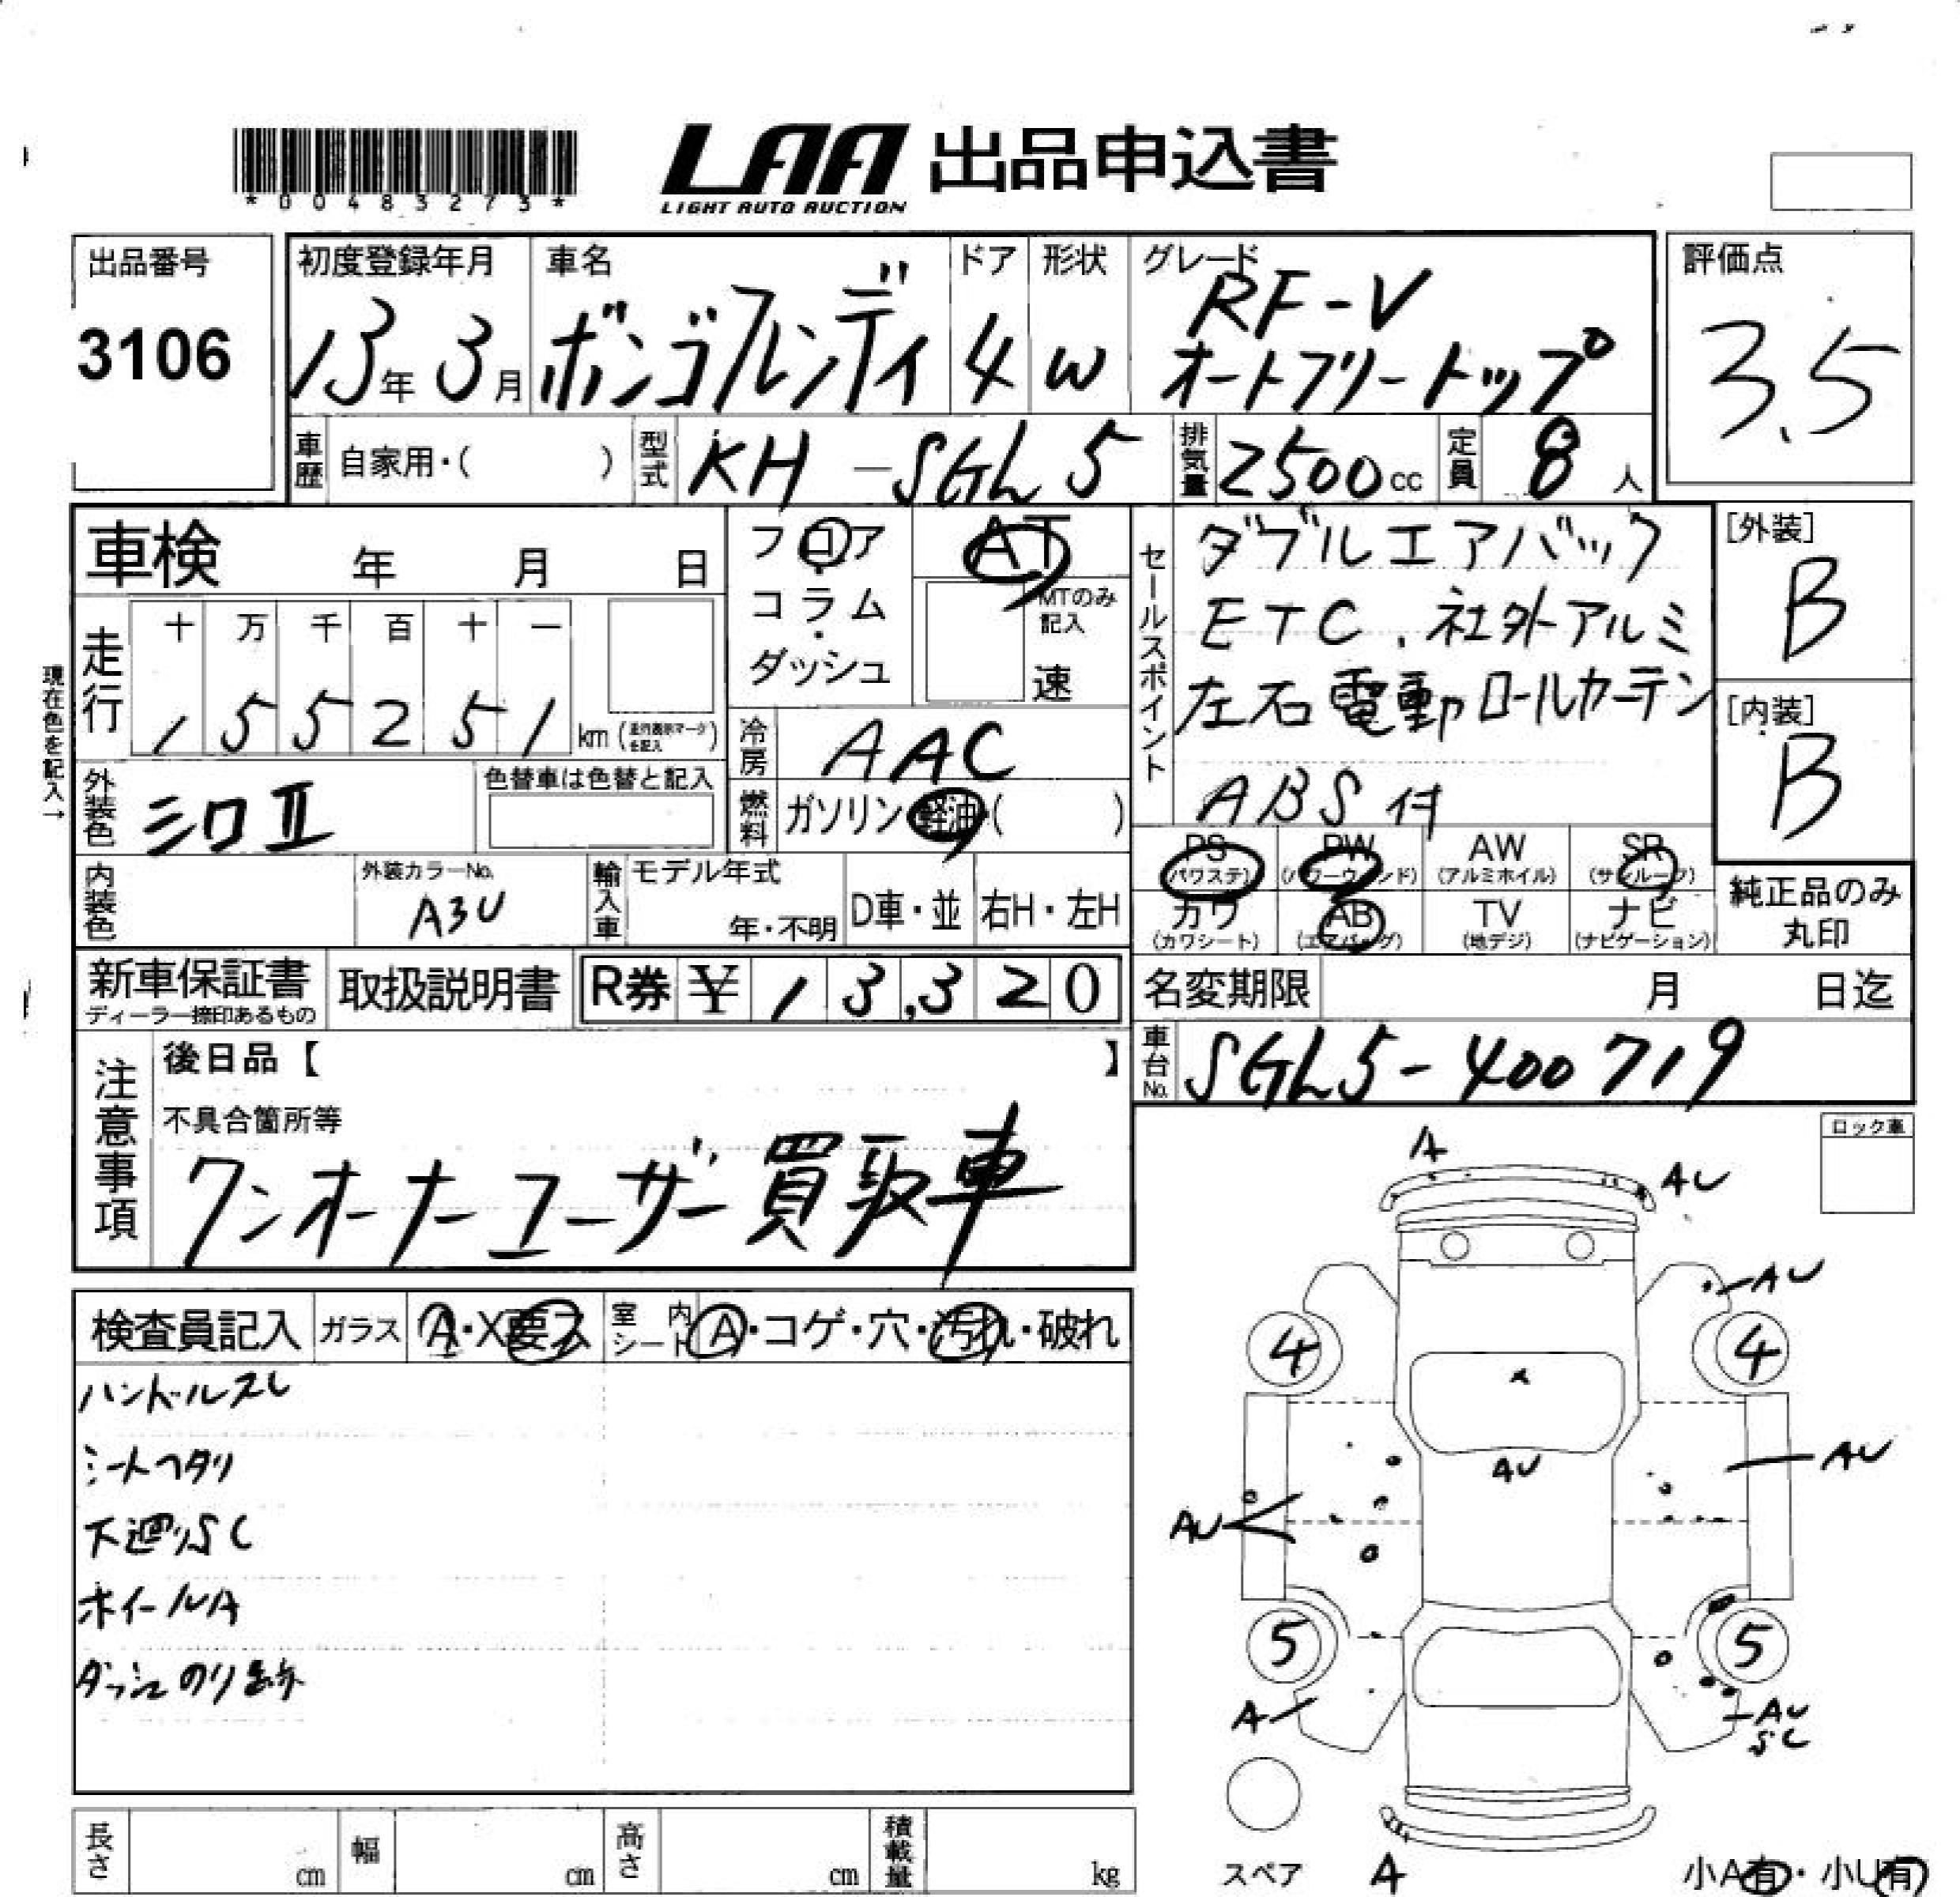 *00483273*
LAA 出品申込書
LIGHT AUTO AUCTION
出品番号
3106
初度登録年月
13年 3月
車名
ボンゴフレンディ
ドア
4
形状
W
グレード
RF-V
オートフリートップ
評価点
3.5
車歴 自家用・( )
型式 KH-SGL5
排気量 2500cc
定員 8人
車検 年 月 日
フロア・コラム・ダッシュ
AT
MTのみ記入
速
セールスポイント
ダブルエアバック
ETC.社外アルミ
左右電動ロールカーテン
ABS付
[外装]
B
[内装]
B
現在色を記入→
走行
十 万 千 百 十 一
1 5 5 2 5 1 km
冷房 AAC
外装色 シロII
色替車は色替と記入
燃料 ガソリン・軽油・( )
PS (パワステ)
PW (パワーウィンド)
AW (アルミホイル)
SR (サンルーフ)
カワ (カワシート)
AB (エアバッグ)
TV (地デジ)
ナビ (ナビゲーション)
純正品のみ
丸印
内装色
外装カラーNo.
A3U
輸入車
モデル年式
年・不明
D車・並
右H・左H
新車保証書
ディーラー捺印あるもの
取扱説明書
R券 ¥ 13,320
名変期限 月 日迄
車台No. SGL5-400719
注意事項
後日品【 】
不具合箇所等
ワンオーナーユーザー買取車
ロック車
検査員記入
ガラス A・X要ス
室内シート A・コゲ・穴・汚れ・破れ
ハンドルスレ
シートヘタリ
下廻りSC
ホイールA
ダッシュのり跡
A
AU
AU
4
4
AU
AU
AU
5
5
A
AU
SC
スペア
A
小A有・小U有
長さ cm
幅 cm
高さ cm
積載量 kg